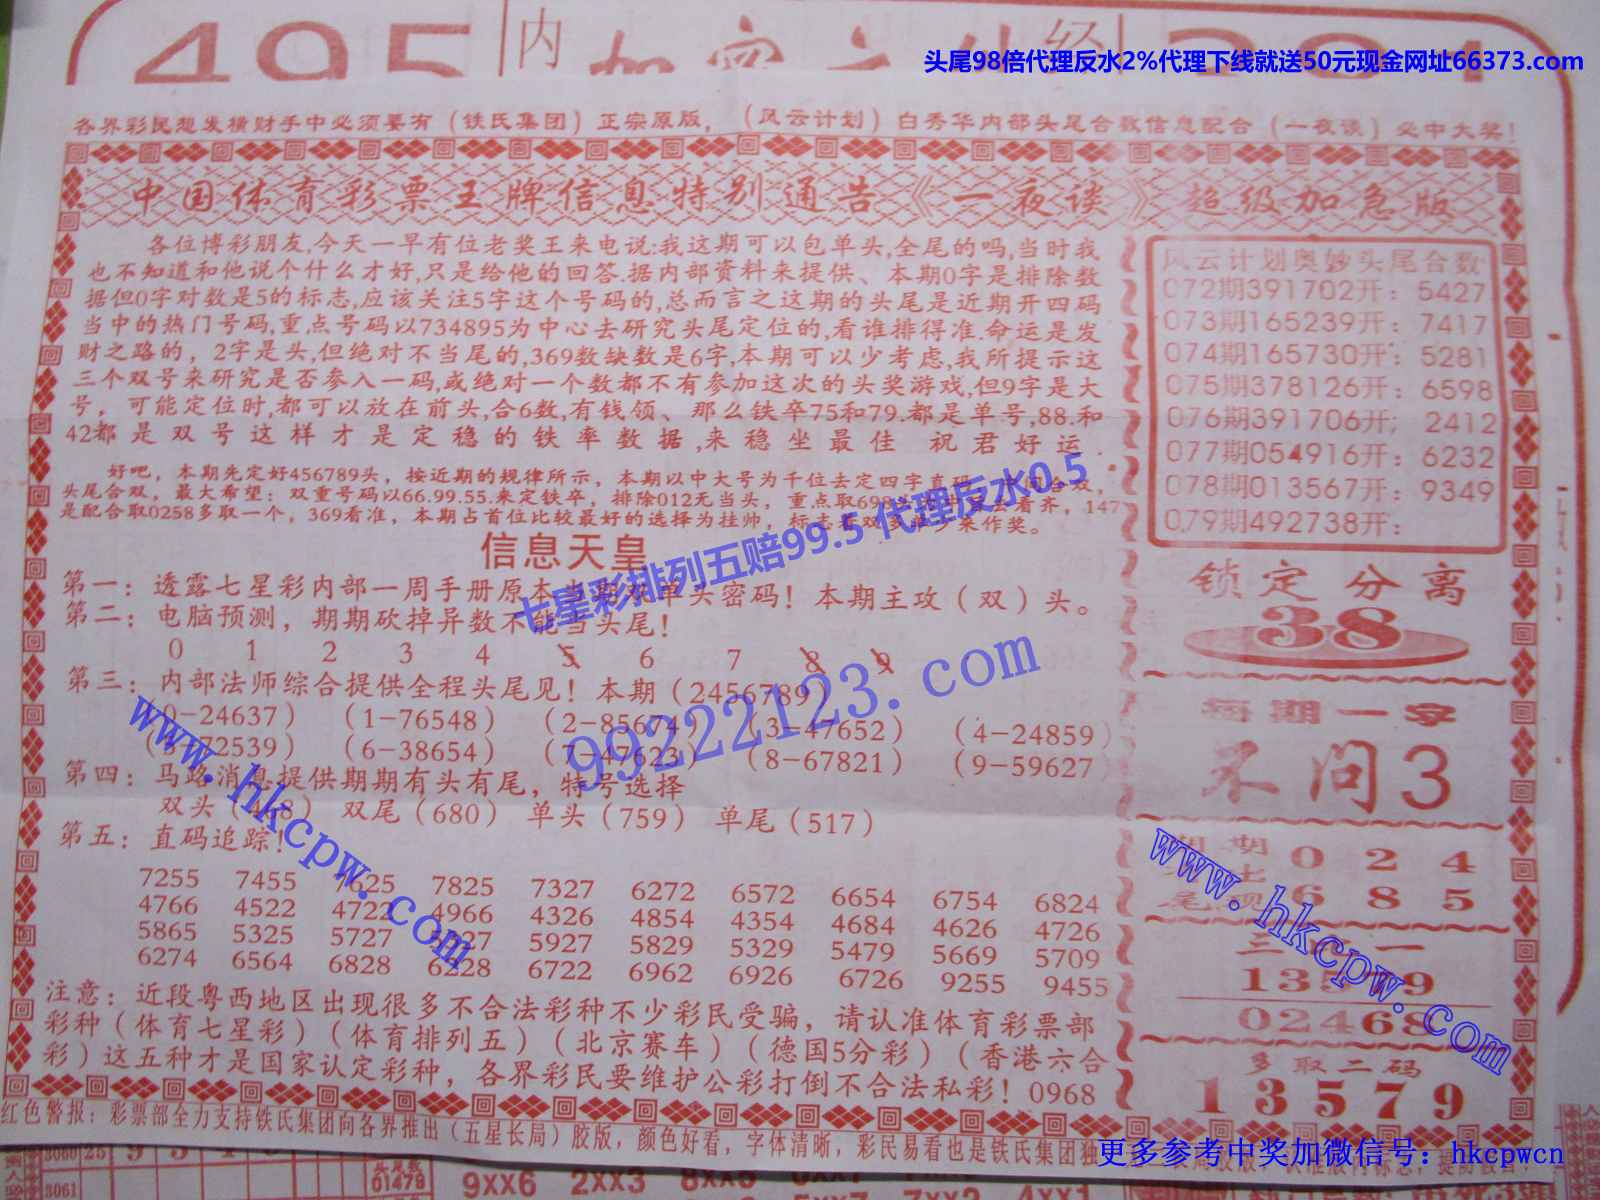 495
内
经
头尾98倍代理反水2%代理下线就送50元现金网址66373.com
各界彩民想发横财手中必须要有（铁氏集团）正宗原版，（风云计划）白秀华内部头尾合数信息配合（一夜谈）必中大奖！
中国体育彩票王牌信息特别通告《一夜谈》超级加急版
各位博彩朋友,今天一早有位老奖王来电说:我这期可以包单头,全尾的吗,当时我
也不知道和他说个什么才好,只是给他的回答.据内部资料来提供、本期0字是排除数
据但0字对数是5的标志,应该关注5字这个号码的,总而言之这期的头尾是近期开四码
当中的热门号码,重点号码以734895为中心去研究头尾定位的,看谁排得准.命运是发
财之路的，2字是头,但绝对不当尾的,369数缺数是6字,本期可以少考虑,我所提示这
三个双号来研究是否参入一码,或绝对一个数都不有参加这次的头奖游戏,但9字是大
号，可能定位时,都可以放在前头,合6数,有钱领、那么铁卒75和79.都是单号,88.和
42都是双号这样才是定稳的铁率数据,来稳坐最佳 祝君好运.
好吧，本期先定好456789头，按近期的规律所示，本期以中大号为千位去定四字直码，
头尾合双，最大希望：双重号码以66.99.55.来定铁卒，排除012无当头，重点取698
是配合取0258多取一个，369看准，本期占首位比较最好的选择为挂帅，标
来作奖。
七星彩排列五赔99.5 代理反水0.5
信息天皇
第一：透露七星彩内部一周手册原本当期双单头密码！本期主攻（双）头。
第二：电脑预测，期期砍掉异数不能当头尾！
0 1 2 3 4 5 6 7 8 9
第三：内部法师综合提供全程头尾见！本期（2456789）
（0-24637）（1-76548）（2-85674）（3-47652）（4-24859）
（5-72539）（6-38654）（7-47623）（8-67821）（9-59627）
第四：马路消息提供期期有头有尾，特号选择
双头（468）双尾（680）单头（759）单尾（517）
第五：直码追踪！
7255 7455 7625 7825 7327 6272 6572 6654 6754 6824
4766 4522 4722 4966 4326 4854 4354 4684 4626 4726
5865 5325 5727 5927 5829 5329 5479 5669 5709
6274 6564 6828 6228 6722 6962 6926 6726 9255 9455
注意：近段粤西地区出现很多不合法彩种不少彩民受骗，请认准体育彩票部
彩种（体育七星彩）（体育排列五）（北京赛车）（德国5分彩）（香港六合
彩）这五种才是国家认定彩种，各界彩民要维护公彩打倒不合法私彩！0968
风云计划奥妙头尾合数
072期391702开：5427
073期165239开：7417
074期165730开：5281
075期378126开：6598
076期391706开：2412
077期054916开：6232
078期013567开：9349
079期492738开：
锁定分离
38
每期一字
不问3
期期 0 2 4
尾 6 8 5
三 一
13579
02468
多取二码
13579
99222123.com
www.hkcpw.com
www.hkcpw.com
红色警报：彩票部全力支持铁氏集团向各界推出（五星长局）胶版，颜色好看，字体清晰，彩民易看也是铁氏集团独
更多参考中奖加微信号：hkcpwcn
3060 25 9
3061
01479
9XX6 2XX3 8XX6